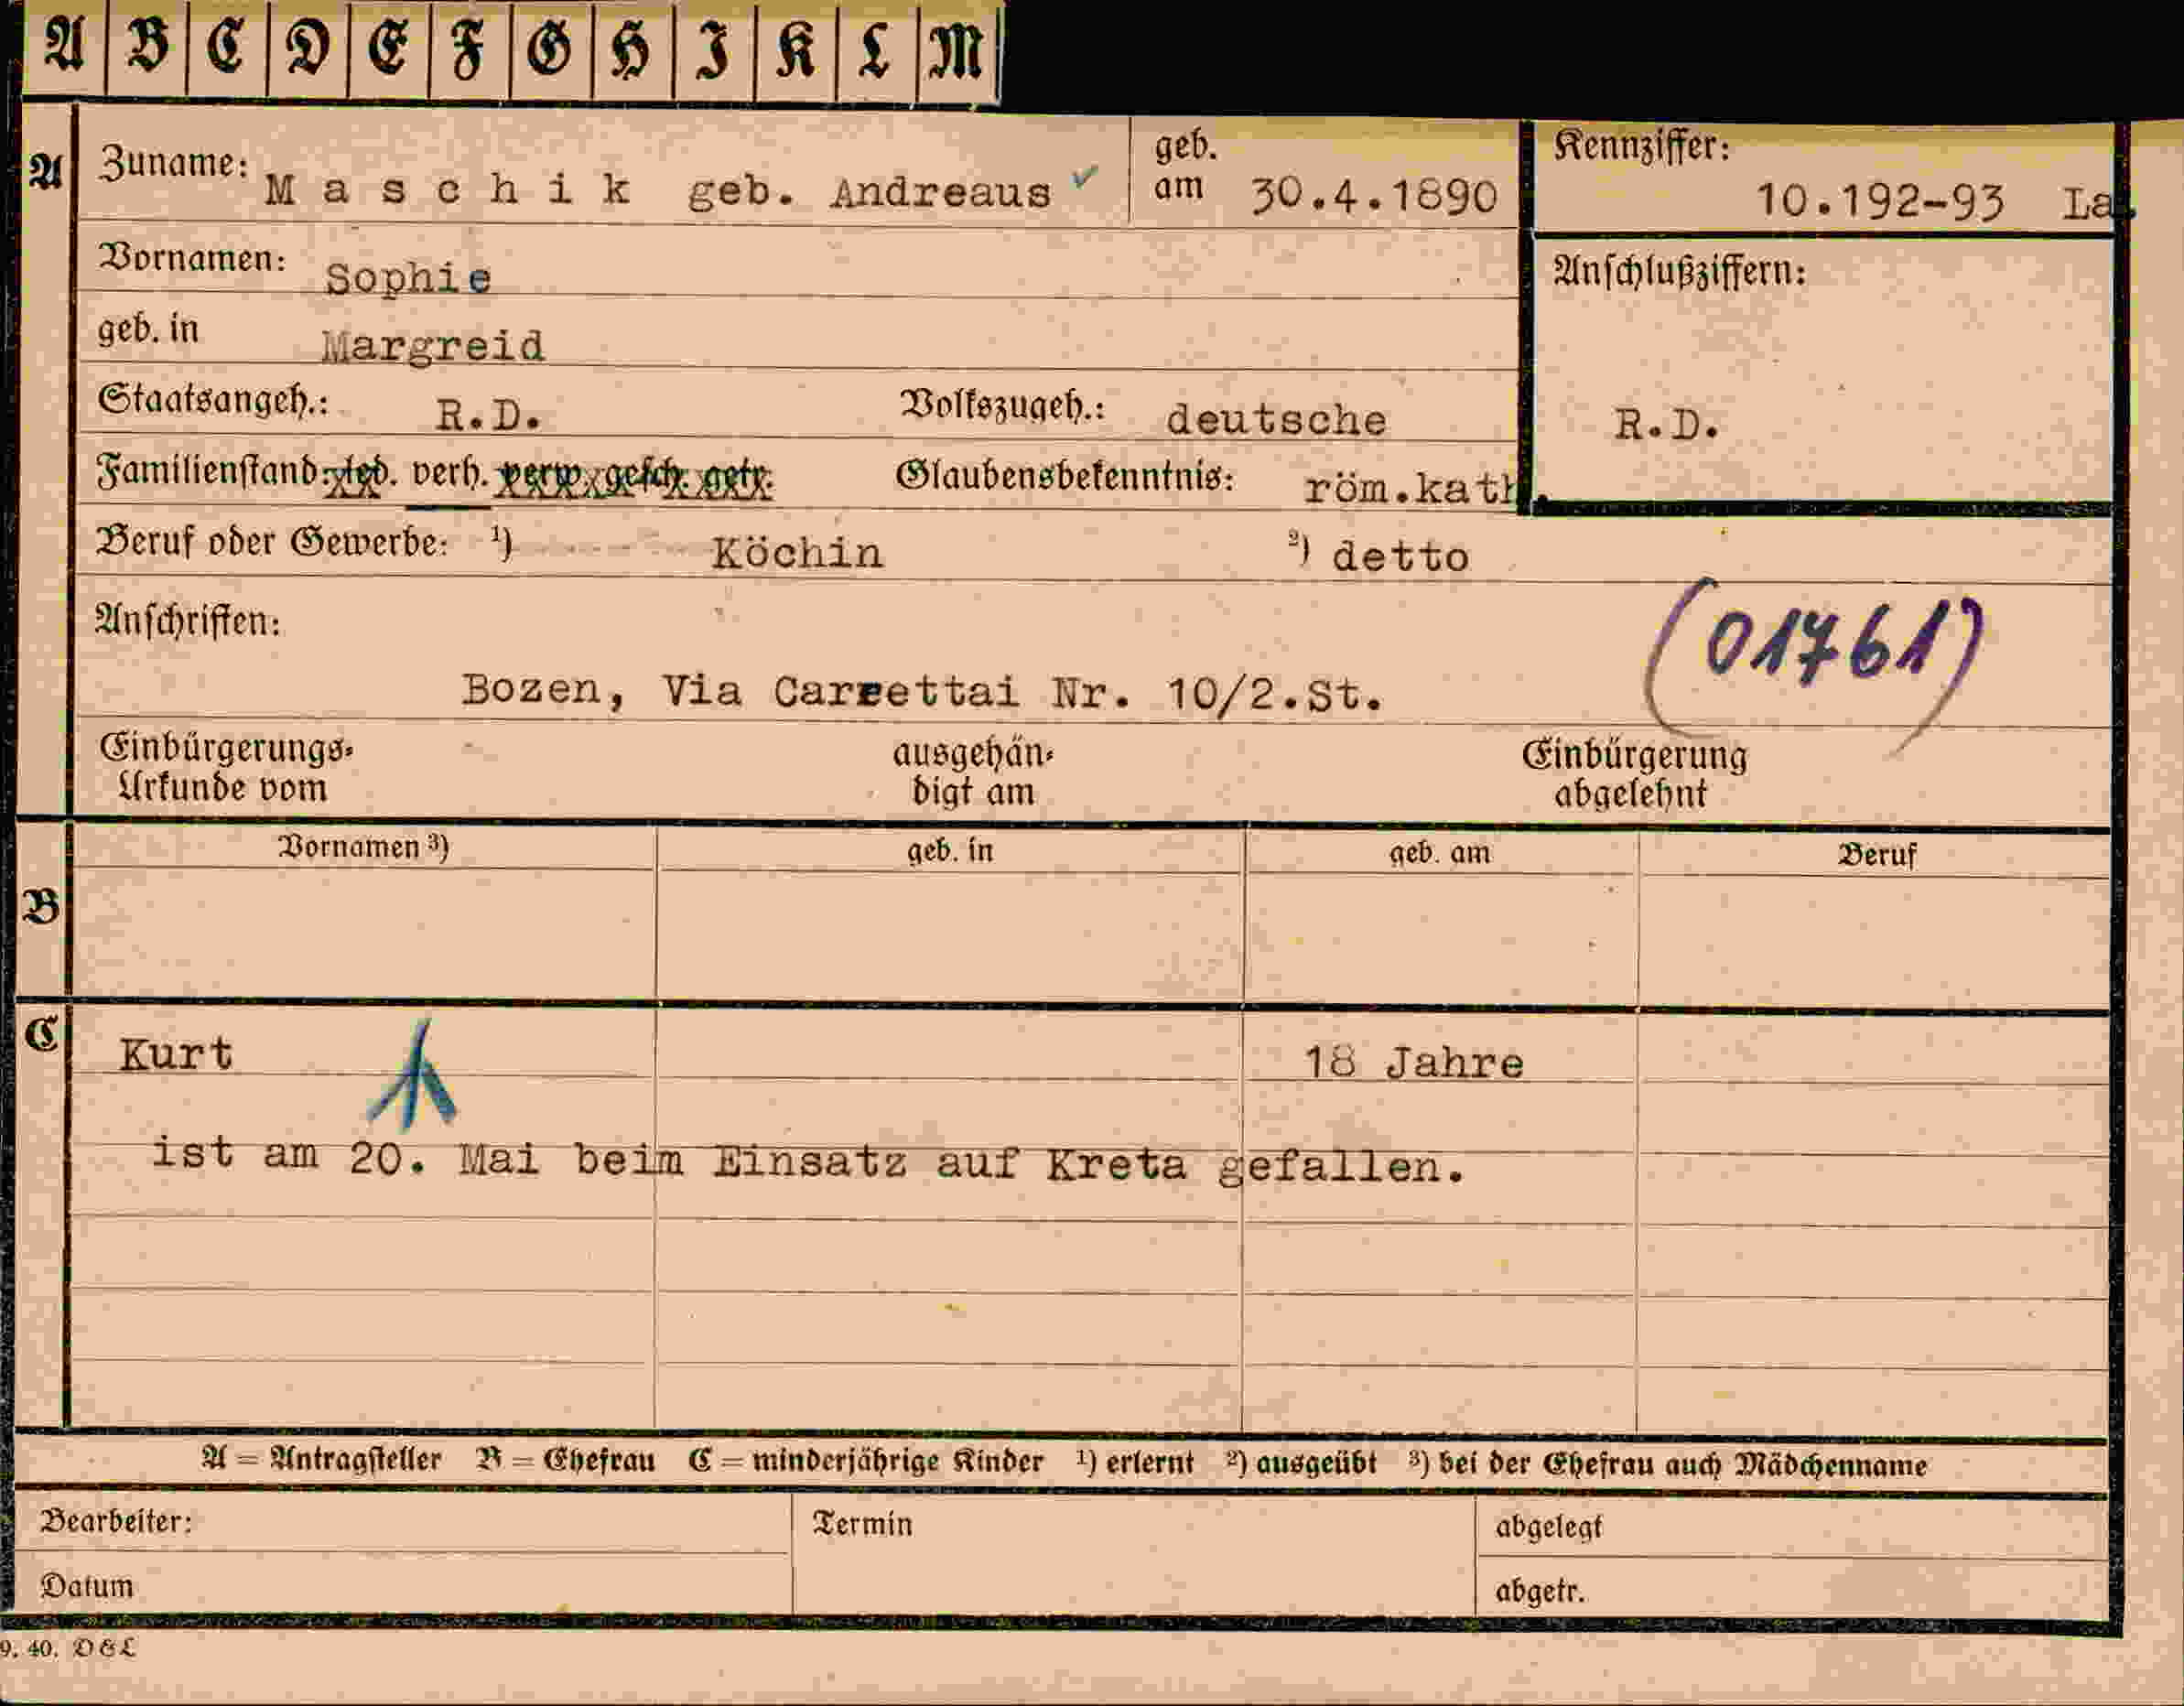 A B C D E F G H I K L M
A Zuname: Maschik geb. Andreaus geb. am 30.4.1890 Kennziffer: 10.192-93 La.
Vornamen: Sophie Anschlußziffern:
geb. in Margreid
Staatsangeh.: R.D. Volkszugeh.: deutsche R.D.
Familienstand: led. verh. verw. gesch. getr. Glaubensbekenntnis: röm.kath.
Beruf oder Gewerbe: 1) Köchin 2) detto
Anschriften: (01761)
Bozen, Via Carrettai Nr. 10/2.St.
Einbürgerungs- ausgehän- Einbürgerung
Urkunde vom digt am abgelehnt
Vornamen 3) geb. in geb. am Beruf
B
C Kurt 18 Jahre
ist am 20. Mai beim Einsatz auf Kreta gefallen.
A = Antragsteller B = Ehefrau C = minderjährige Kinder 1) erlernt 2) ausgeübt 3) bei der Ehefrau auch Mädchenname
Bearbeiter: Termin abgelegt
Datum abgetr.
9. 40. D&L